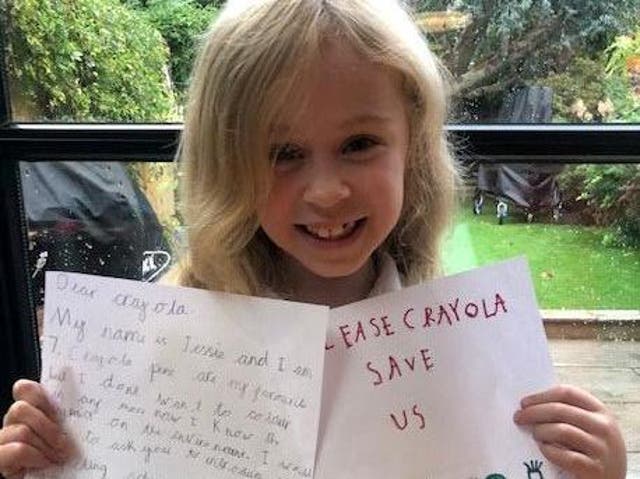 Dear crayola
My name is Jessie and I am
7. Crayola pens are my favourite
but I dont want to colour
any more now I know th
on the environment. I would
to ask you to introduce
LEASE CRAYOLA
SAVE
US